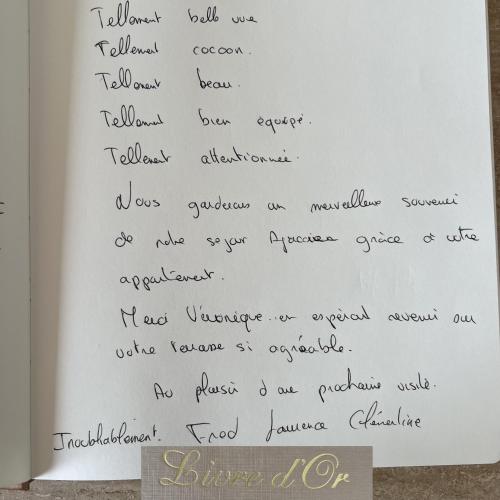 Tellement belle vue
Tellement cocoon.
Tellement beau.
Tellement bien équipé.
Tellement attentionnée.
Nous garderons un merveilleux souvenir
de notre sejour Ajaccien grâce à votre
appartement.
Merci Véronique.. en espérant revenir sur
votre terrasse si agréable.
Au plaisir d'une prochaine visite.
Inoubliablement. Fred Laurence Clémentine
Livre d'Or